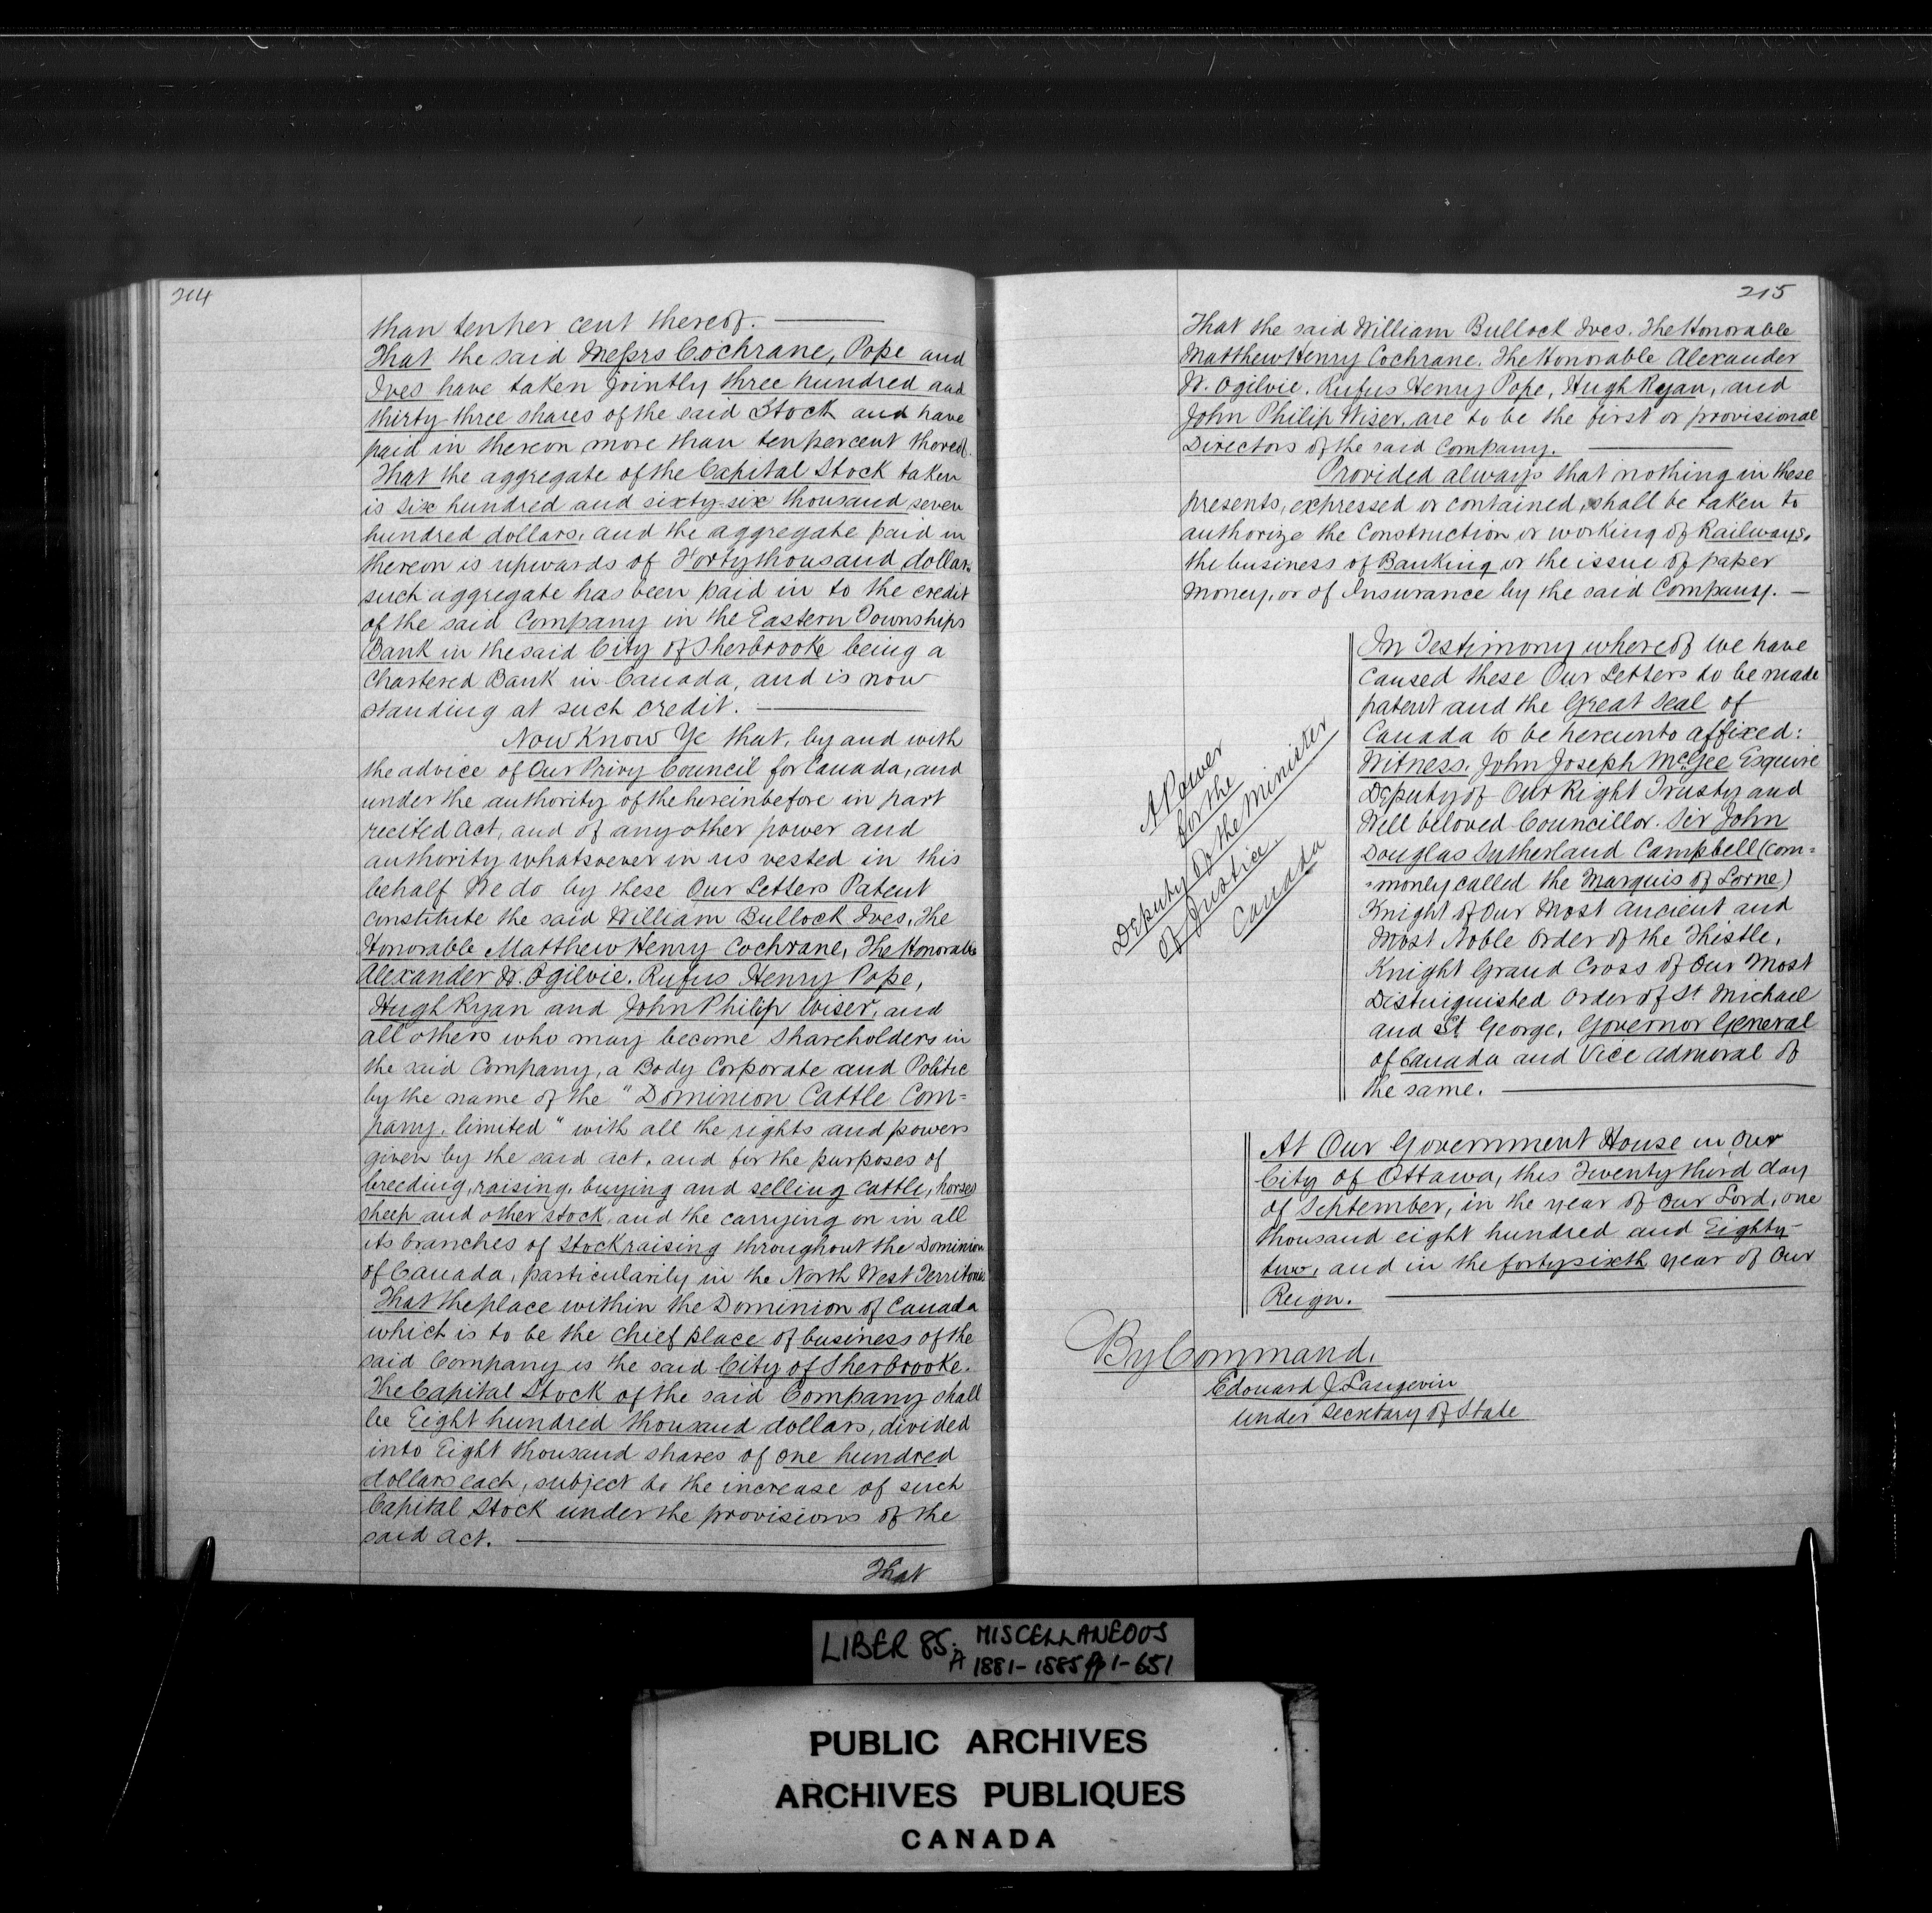 214
than ten per cent thereof.
That the said Messrs Cochrane, Pope and
Ives have taken jointly three hundred and
thirty three shares of the said Stock and have
paid in thereon more than ten per cent thereof.
That the aggregate of the Capital Stock taken
is six hundred and sixty-six thousand seven
hundred dollars, and the aggregate paid in
thereon is upwards of Forty thousand dollars.
such aggregate has been paid in to the credit
of the said Company in the Eastern Townships
Bank in the said City of Sherbrooke being a
Chartered Bank in Canada, and is now
standing at such credit.
Now Know Ye that, by and with
the advice of Our Privy Council for Canada, and
under the authority of the hereinbefore in part
recited Act, and of any other power and
authority whatsoever in us vested in this
behalf We do by these Our Letters Patent
constitute the said William Bullock Ives, The
Honorable Matthew Henry Cochrane, The Honorable
Alexander W. Ogilvie, Rufus Henry Pope,
Hugh Ryan and John Philip Wiser, and
all others who may become Shareholders in
the said Company, a Body Corporate and Politic
by the name of the "Dominion Cattle Com=
pany, limited" with all the rights and powers
given by the said act, and for the purposes of
breeding, raising, buying and selling cattle, horses
sheep and other stock, and the carrying on in all
its branches of Stockraising throughout the Dominion
of Canada, particularily in the North West Territories
That the place within the Dominion of Canada
which is to be the chief place of business of the
said Company is the said City of Sherbrooke.
The Capital Stock of the said Company shall
be Eight hundred thousand dollars, divided
into Eight thousand shares of one hundred
dollars each, subject to the increase of such
Capital Stock under the provisions of the
said Act.
That
215
That the said William Bullock Ives, The Honorable
Matthew Henry Cochrane, The Honorable Alexander
W. Ogilvie, Rufus Henry Pope, Hugh Ryan, and
John Philip Wiser, are to be the first or provisional
Directors of the said Company.
Provided always that nothing in these
presents, expressed or contained, shall be taken to
authorize the Construction or working of Railways,
the business of Banking or the issue of paper
money, or of Insurance by the said Company.
A Power
for the
Deputy of the Minister
of Justice
Canada
In Testimony whereof We have
caused these Our Letters to be made
patent and the Great Seal of
Canada to be hereunto affixed:
Witness, John Joseph McGee Esquire
Deputy of Our Right Trusty and
Well beloved Councillor Sir John
Douglas Sutherland Campbell (com=
=monly called the Marquis of Lorne)
Knight of Our Most Ancient and
Most Noble Order of the Thistle,
Knight Grand Cross of Our Most
Distinguished Order of St Michael
and St George, Governor General
of Canada and Vice Admiral of
the same.
At Our Government House in Our
City of Ottawa, this Twenty third day
of September, in the year of Our Lord, one
thousand eight hundred and Eighty-
two, and in the forty sixth year of Our
Reign.
By Command,
Edouard J. Langevin
Under Secretary of State
LIBER 85. A MISCELLANEOUS
1881-1885 pp 1-651
PUBLIC ARCHIVES
ARCHIVES PUBLIQUES
CANADA